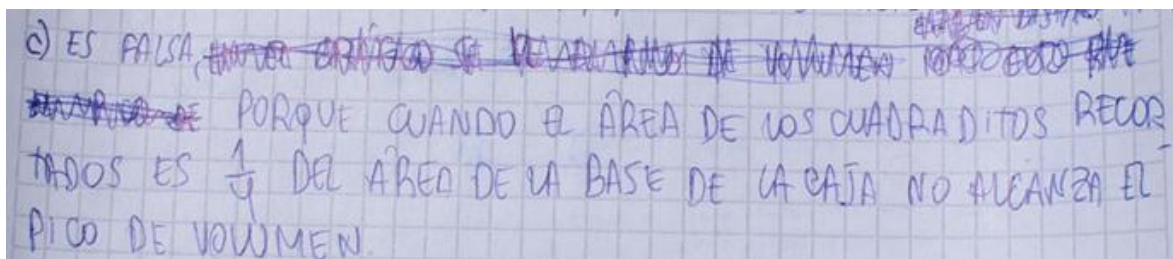 c) ES FALSA,
PORQUE CUANDO EL ÁREA DE LOS CUADRADITOS RECOR-
TADOS ES 1/4 DEL ÁREA DE LA BASE DE LA CAJA NO ALCANZA EL
PICO DE VOLUMEN.